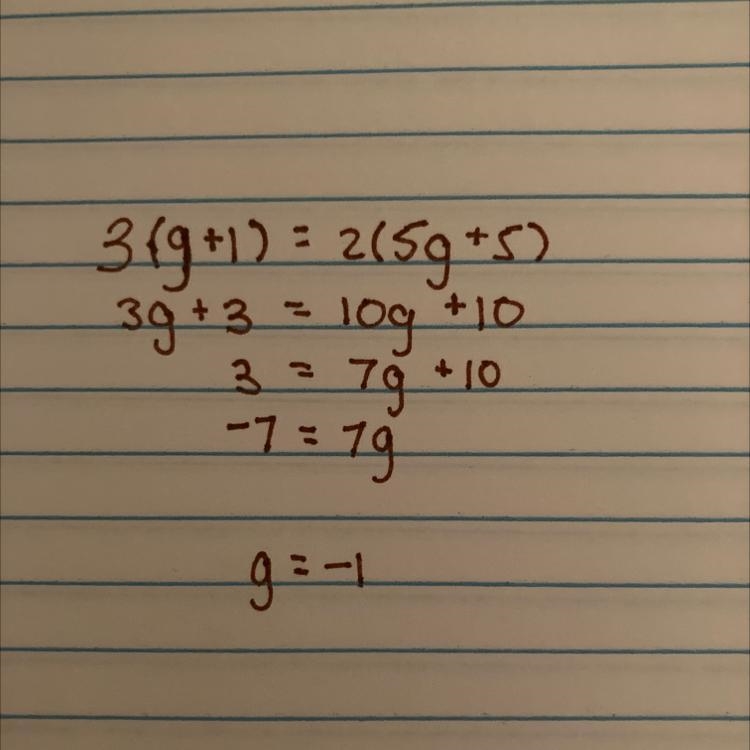 3(g+1) = 2(5g+5)
3g + 3 = 10g + 10
3 = 7g + 10
-7 = 7g
g = -1